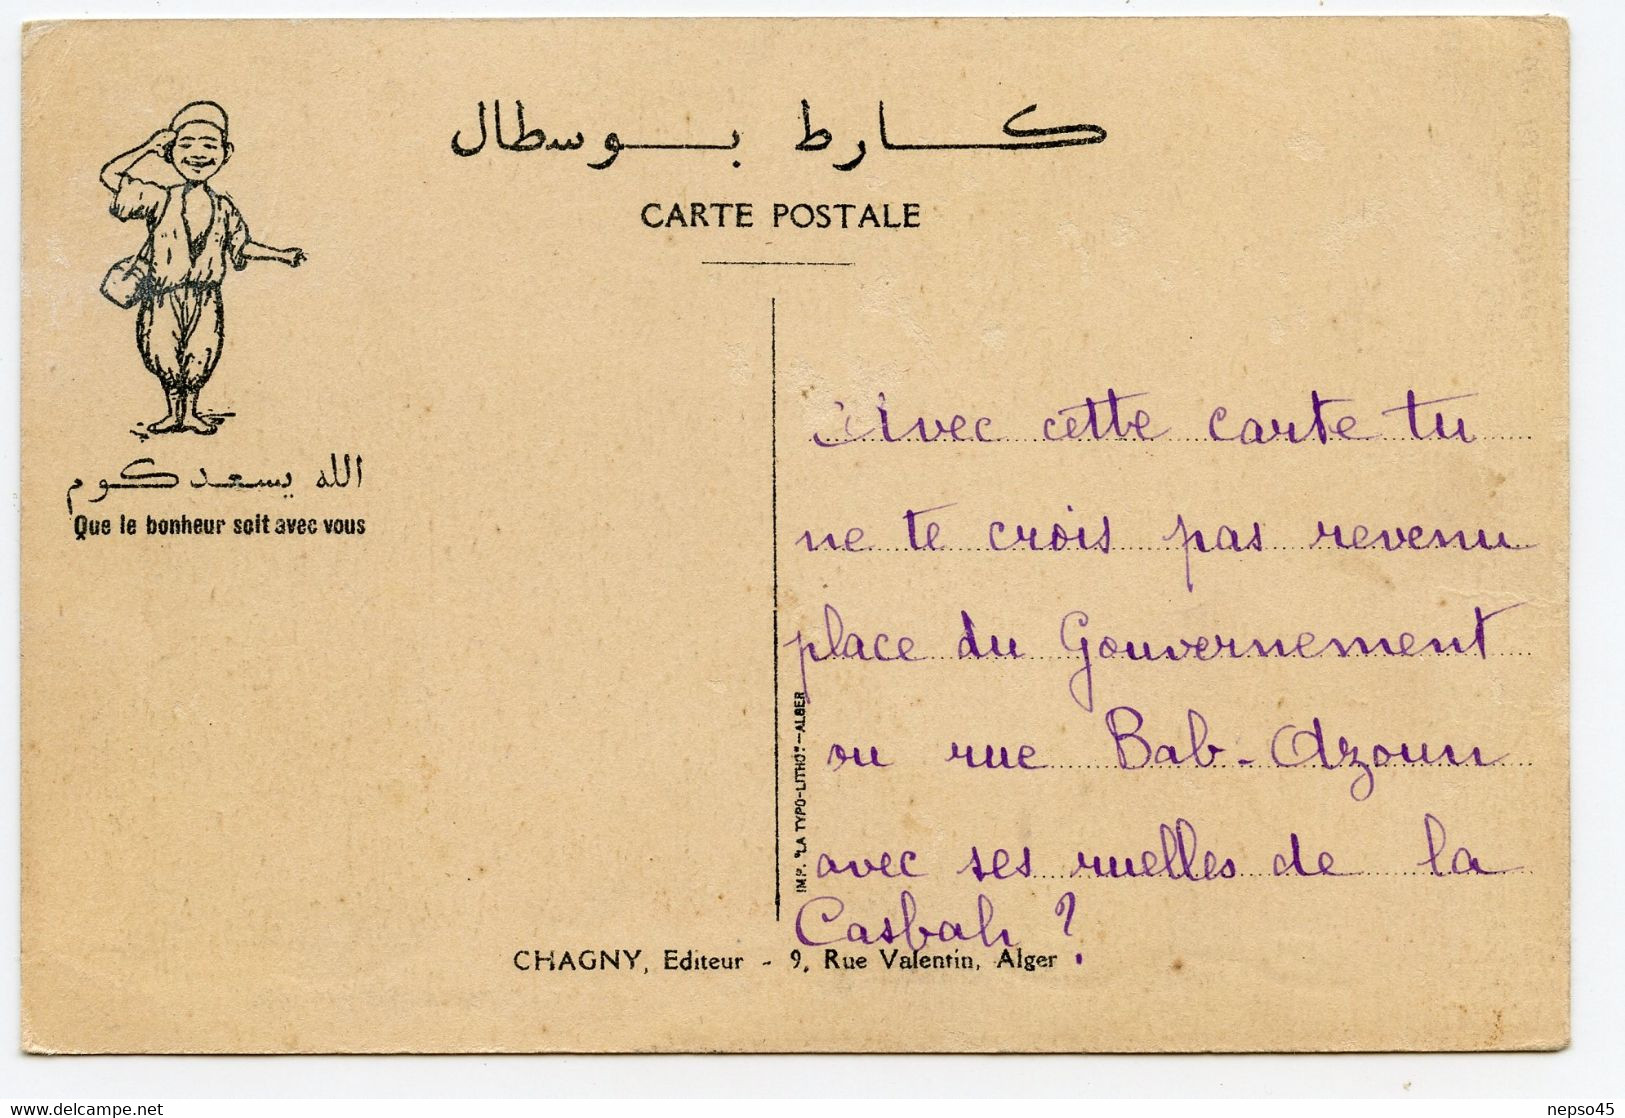 كارط بوسطال
CARTE POSTALE
الله يسعدكوم
Que le bonheur soit avec vous
Avec cette carte tu
ne te crois pas revenu
place du Gouvernement
ou rue Bab-Azoun
avec ses ruelles de la
Casbah ?
IMP. "LA TYPO-LITHO" - ALGER
CHAGNY, Editeur - 9, Rue Valentin, Alger
delcampe.net
nepso45